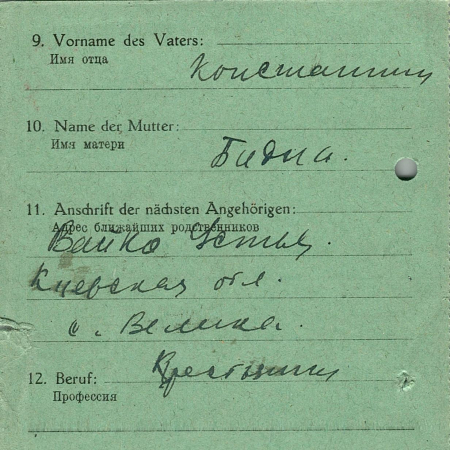 9. Vorname des Vaters:
Имя отца
Константин
10. Name der Mutter:
Имя матери
Бидна.
11. Anschrift der nächsten Angehörigen:
Адрес ближайших родственников
Вайко
Киевская обл.
с. Велика.
12. Beruf: Крестьянин
Профессия